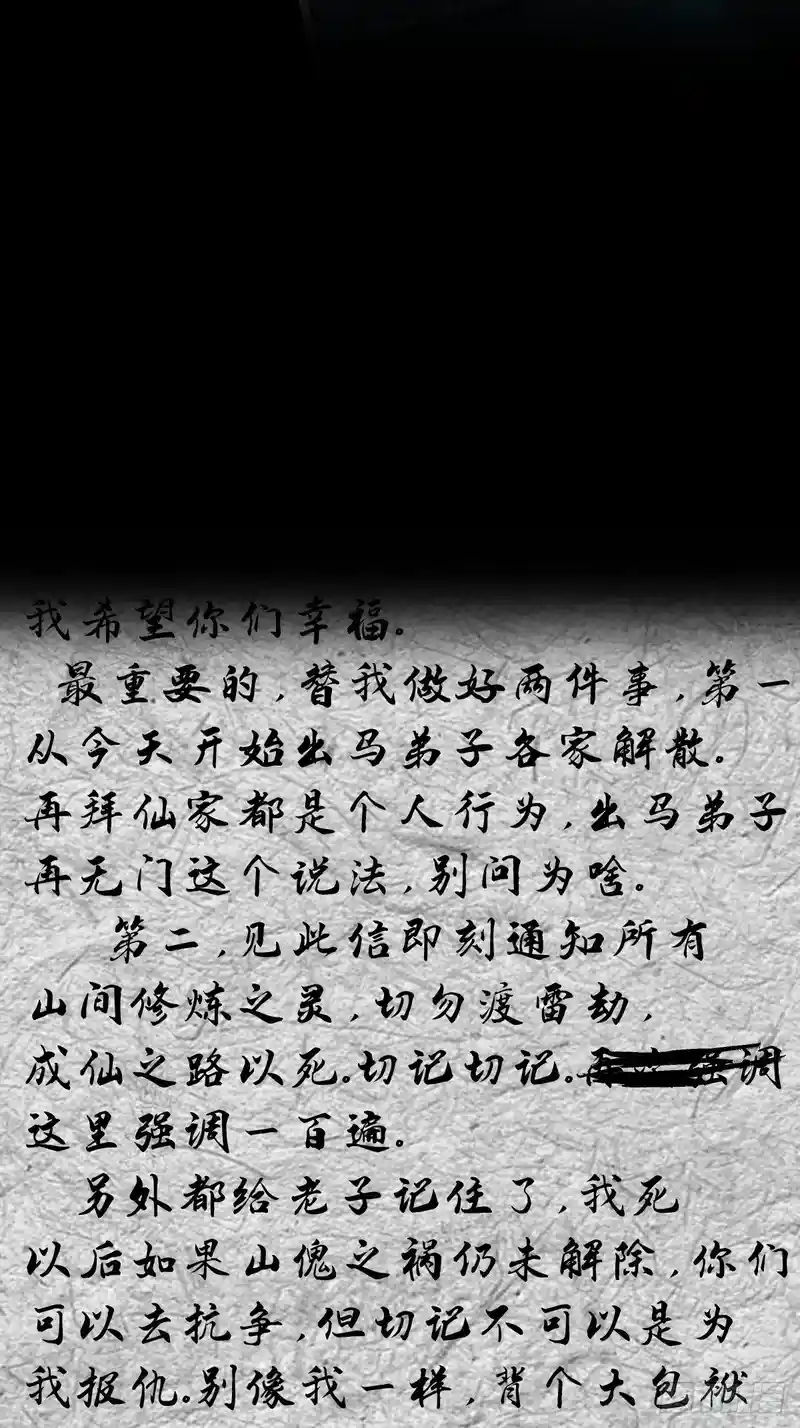 我希望你们幸福。
最重要的,替我做好两件事,第一
从今天开始出马弟子各家解散。
再拜仙家都是个人行为,出马弟子
再无门这个说法,别问为啥。
第二,见此信即刻通知所有
山间修炼之灵,切勿渡雷劫,
成仙之路以死。切记切记。强调
这里强调一百遍。
另外都给老子记住了,我死
以后如果山傀之祸仍未解除,你们
可以去抗争,但切记不可以是为
我报仇。别像我一样,背个大包袱